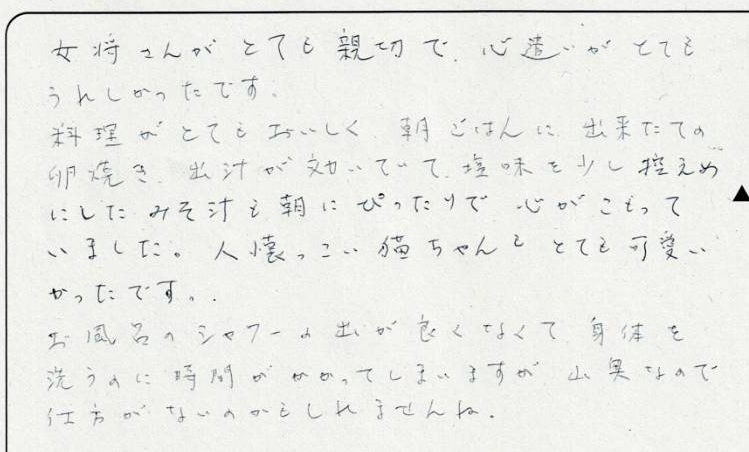 女将さんがとても親切で、心遣いがとても
うれしかったです。
料理がとてもおいしく、朝ごはんに出来たての
卵焼き、出汁が効いていて、塩味を少し控えめ
にしたみそ汁も朝にぴったりで心がこもって
いました。人懐っこい猫ちゃんもとても可愛い
かったです。
お風呂のシャワーの出が良くなくて身体を
洗うのに時間がかかってしまいますが、山奥なので
仕方がないのかもしれませんね。